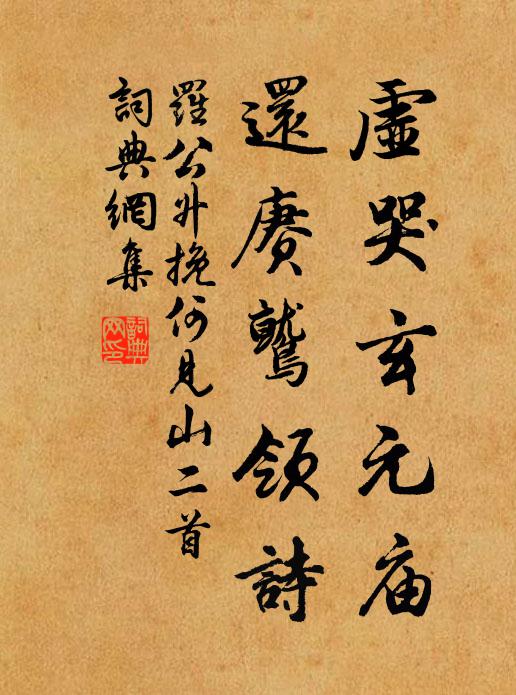 虛哭玄元庙
還赓鷲領詩
羅公升挽何見山二首
詞典網集
詞典
网印